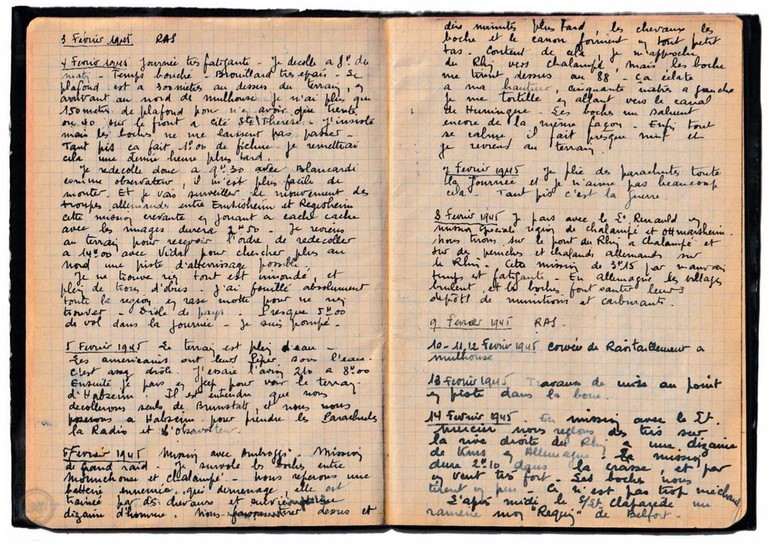 3 Février 1945 RAS
4 Février 1945 Journée très fatigante - Je decolle a 8h du
matin - Temps bouché - Brouillard tres epais - Le
plafond est a 300 mètres au dessus du terrain, en
arrivant au nord de mulhouse je n'ai plus que
150 metres de plafond pour n'en avoir que trente
ou 40 sur le front, Cité Ste Therese. J'insiste
mais les boches ne me laissent pas passer -
Tant pis ca fait 1h00 de fichue je remettrai
cela une demie heure plus tard.
Je redecolle donc a 9h30 avec Blancardi
comme observateur, il m'est plus facile de
monter. Et je vais surveiller le mouvement des
troupes allemandes entre Ensisheim et Regisheim
cette mission crevante en jouant a cache cache
avec les nuages durera 2h00 - Je reviens
au terrain pour recevoir l'ordre de redecoller
a 14h00 avec Vidal pour chercher plus au
nord une piste d'atterrissage possible.
Je ne trouve rien tout est inondé, et
plein de trous d'obus - J'ai fouillé absolument
toute la region en rase motte pour ne rien
trouver - Drôle de pays. - Presque 5h00
de vol dans la journée - Je suis pompé -
5 Février 1945 Le terrain est plein d'eau -
Les americains ont leur Piper sous l'eau.
c'est assez drôle. J'essaie l'avion 210 a 8h00
Ensuite je pars en jeep pour voir le terrain
d'Habsheim. Il est entendu que nous
decollerons seuls de Brunstatt, et nous nous
poserons a Habsheim pour prendre les Parachutes
la Radio et l'observateur.
6 Février 1945 Mission avec Ambroggi. Mission
de grand raid - Je survole les boches entre
Munchouse et Chalampé - nous reperons une
batterie ennemie qui demenage, elle est
trainée par des chevaux et suivie par une
dizaine d'hommes. Nous faisons tirer dessus et
dix minutes plus tard, les chevaux les
boche et le canon forment un tout petit
tas. Content de cela je m'approche
du Rhin vers chalampé, mais les boche
me tirent dessus au 88 - ca éclate
a ma hauteur, cinquante mètres a gauche
je me tortille en allant vers le canal
de Huningue - Les boches me saluent
encore de la même façon - Enfin tout
se calme il fait presque nuit et
je reviens au terrain.
7 Février 1945 Je plie des parachutes toute
la journée et je n'aime pas beaucoup
cela. Tant pis c'est la guerre
8 Février 1945 Je pars avec le Lt Renauld en
mission spéciale région de chalampé et ottmarsheim.
Nous tirons sur le pont du Rhin a chalampé et
sur des peniches et chalands allemands sur
le Rhin. Cette mission de 3h15 par mauvais
temps est fatigante - En allemagne les villages
brulent, et les boches font sauter leurs
dépôts de munitions et carburants.
9 Février 1945 RAS -
10-11, 12 Février 1945 Corvée de Ravitaillement a
mulhouse
13 Février 1945 Travaux de mise au point
en piste dans la boue.
14 Février 1945. En mission avec le Lt.
Mercier nous reglons des tirs sur
la rive droite du Rhin a une dizaine
de Kms en Allemagne. La mission
dure 2h10 dans la crasse, et par
un vent tres fort - Les boches nous
tirent un peu - Ce n'est pas trop méchant
L'après midi le S/Lt Claparede me
ramène mon "Requin" de Belfort.